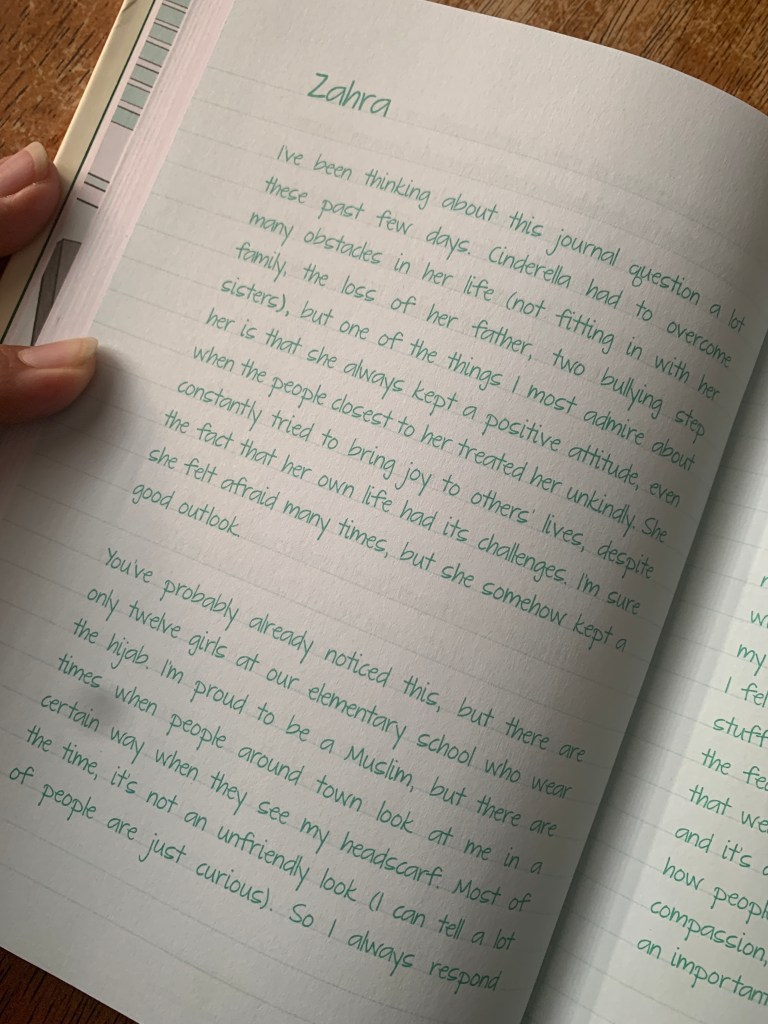 Zahra
I've been thinking about this journal question a lot
these past few days. Cinderella had to overcome
many obstacles in her life (not fitting in with her
family, the loss of her father, two bullying step
sisters), but one of the things I most admire about
her is that she always kept a positive attitude, even
when the people closest to her treated her unkindly. She
constantly tried to bring joy to others' lives, despite
the fact that her own life had its challenges. I'm sure
she felt afraid many times, but she somehow kept a
good outlook.
You've probably already noticed this, but there are
only twelve girls at our elementary school who wear
the hijab. I'm proud to be a Muslim, but there are
times when people around town look at me in a
certain way when they see my headscarf. Most of
the time, it's not an unfriendly look (I can tell a lot
of people are just curious). So I always respond
my
I
stuff
the
that
and it's
how
compassion,
an important